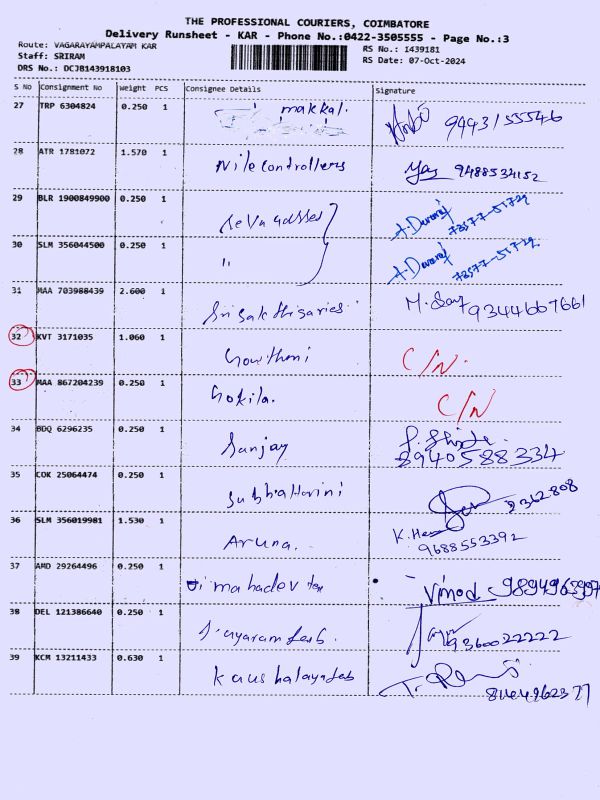 THE PROFESSIONAL COURIERS, COIMBATORE
Delivery Runsheet - KAR - Phone No.:0422-3505555 - Page No.:3
Route: VAGARAYAMPALAYAM KAR RS No.: 1439181
Staff: SRIRAM RS Date: 07-Oct-2024
DRS No.: DCJ8143918103
S No Consignment No Weight PCS Consignee Details Signature
27 TRP 6304824 0.250 1 makkal. 9443155546
28 ATR 1781072 1.570 1 Nile controllers 9488534152
29 BLR 1900849900 0.250 1 73577-51729
30 SLM 356044500 0.250 1 " 73577-51729
31 MAA 703988439 2.600 1 M. 9344667661
32 KVT 3171035 1.060 1 Gowthmi C/N.
33 MAA 867204239 0.250 1 Gokila. C/N
34 BDQ 6296235 0.250 1 Sanjay 8940588334
35 COK 25064474 0.250 1 SubhaHarini 9362808
36 SLM 356019981 1.530 1 Aruna. K. 9688553392
37 AMD 29264496 0.250 1 mahadev tex Vinod
38 DEL 121386640 0.250 1 9360022222
39 KCM 13211433 0.630 1 Kaushalayatex